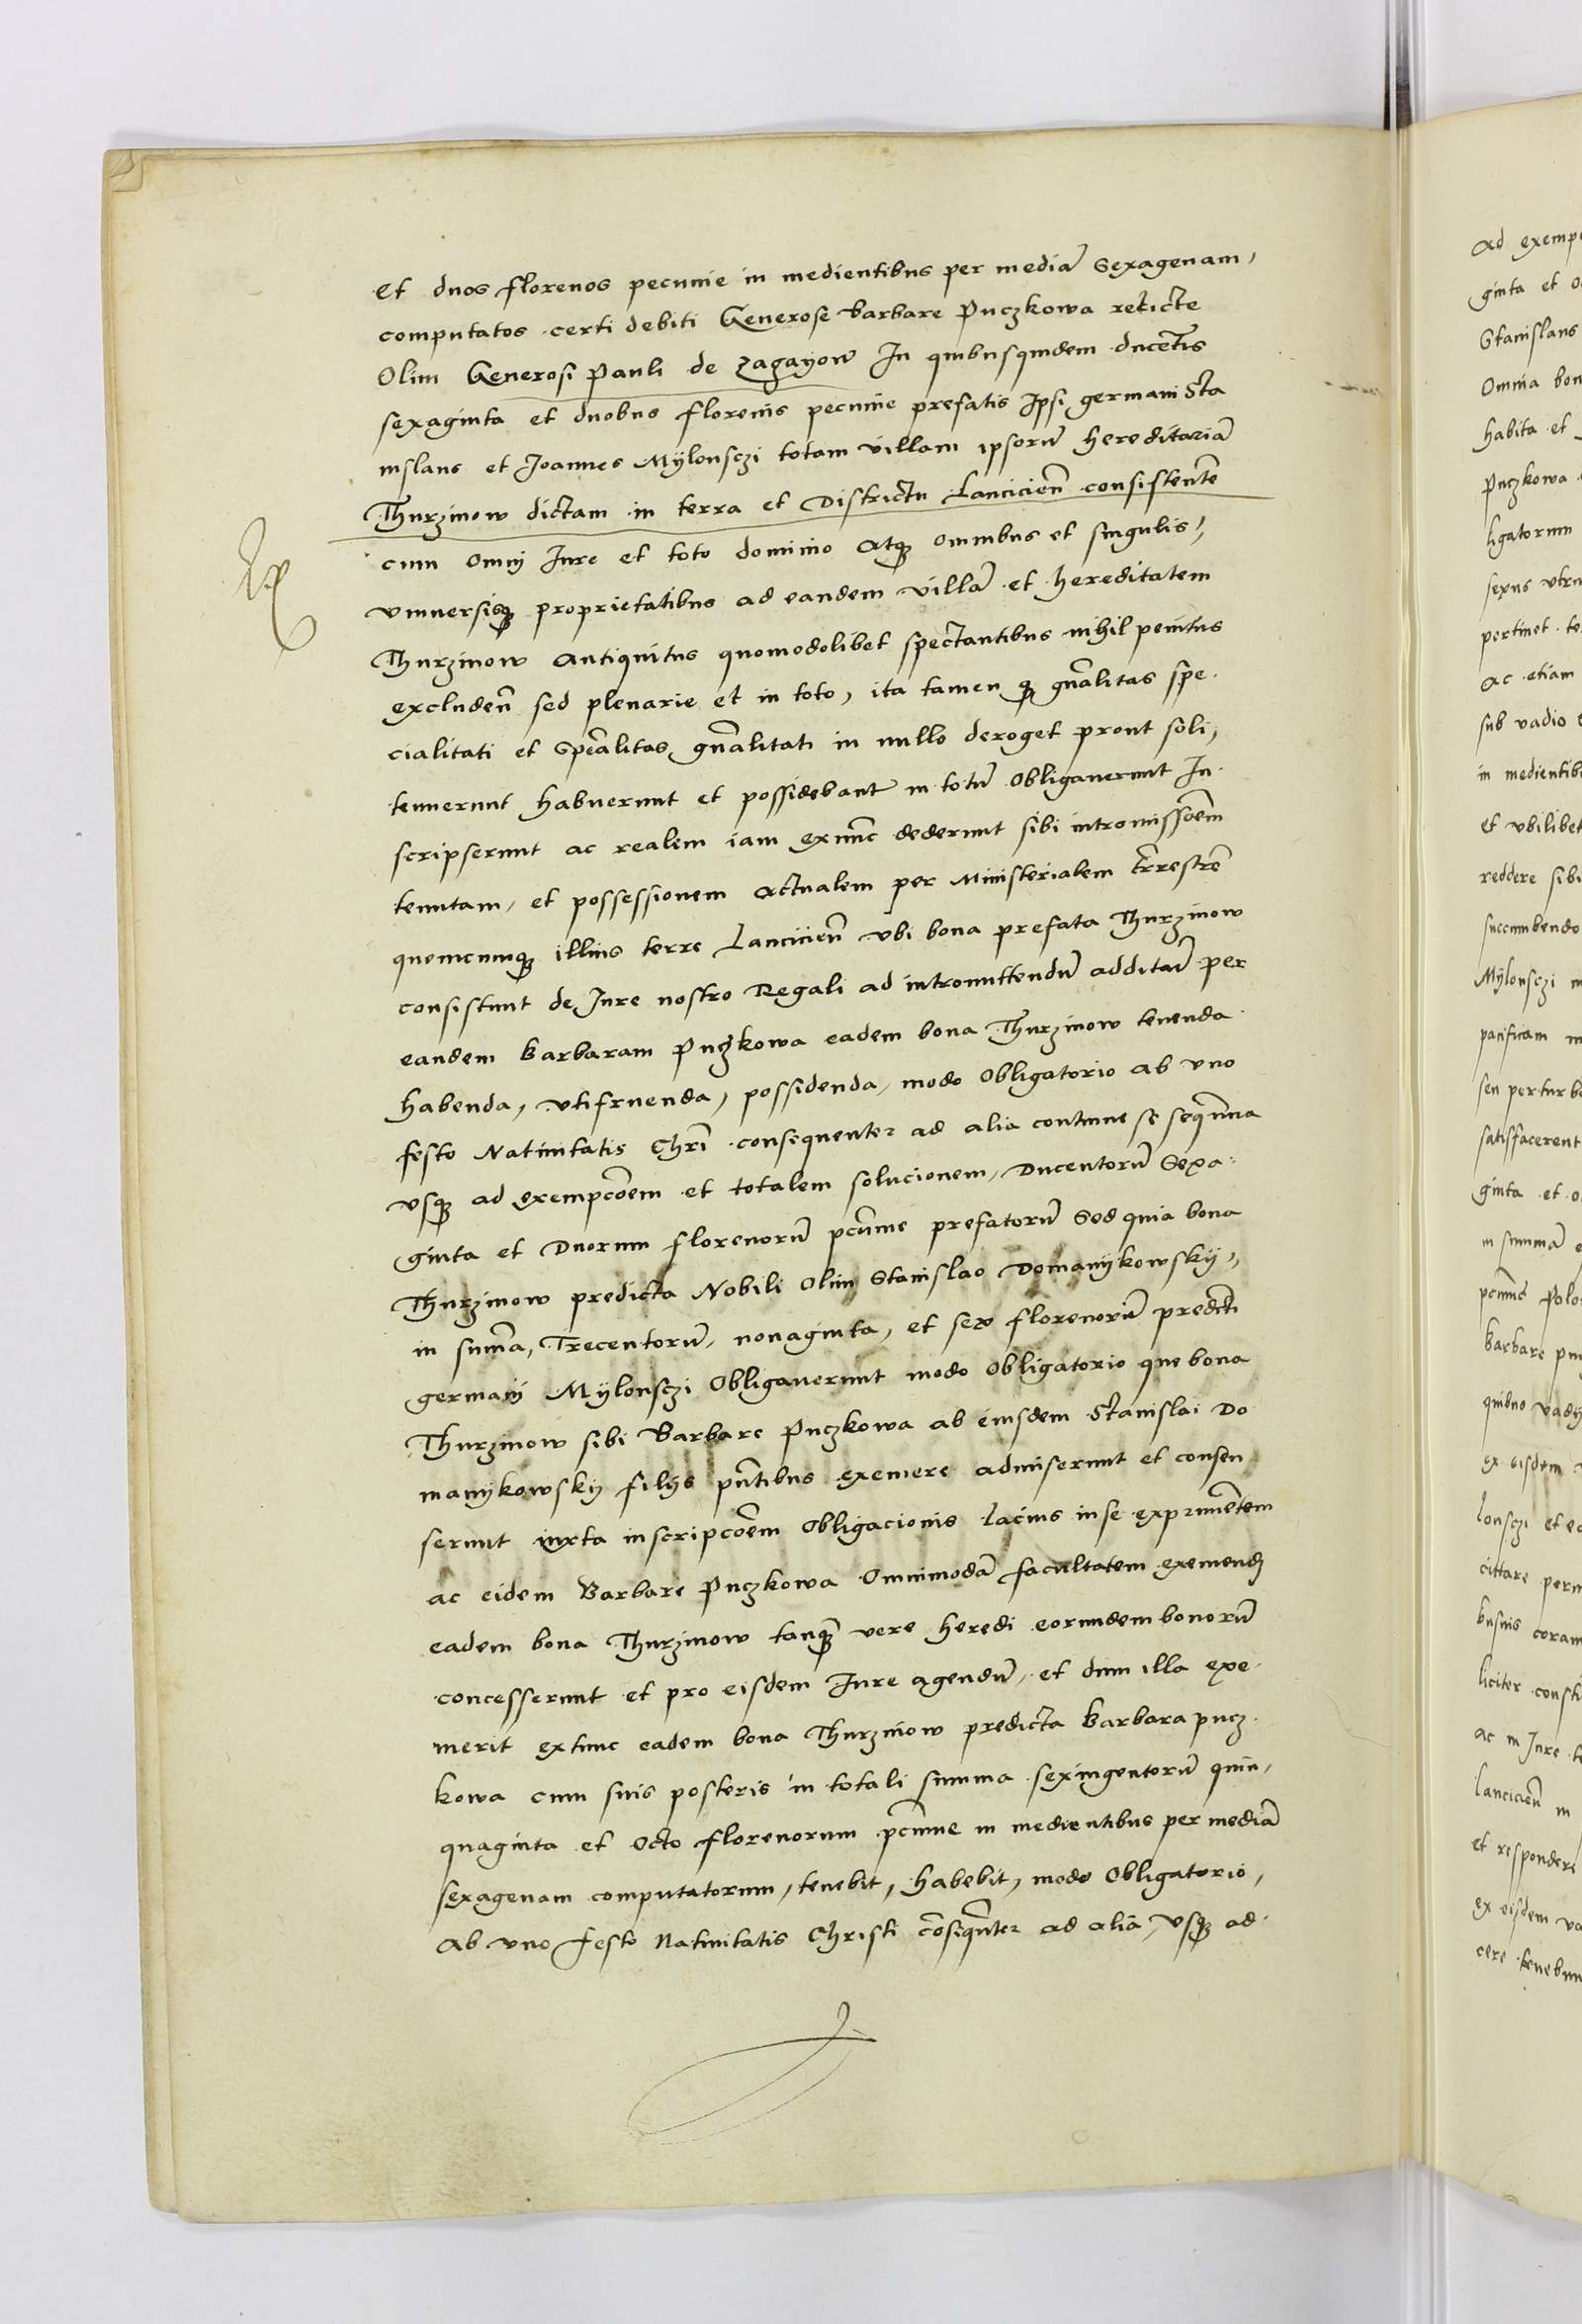 Et duos florenos pecunie in medientibus per mediã Sexagenam,
computatos certi debiti Generose barbare Puczkowa relicte
Olim Generosi Pauli de Zagayow In quibusquidem ducẽtis
sexaginta et duobus florenis pecunie prefatis Ipsi germani Sta
nislaus et Joannes Mÿlonsczi totam villam ipsorũ hereditariã
Thurzinow dictam in terra et Districtu Lanciciẽn consistentẽ
cum omnj Jure et toto dominio atqꝫ omnibus et singulis,
vniuersisqꝫ proprietatibus ad eandem villã et hereditatem
Thurzinow antiquitus quomodolibet spectantibus nihil penitus
excludeñ sed plenarie et in toto, ita tamen qꝫ gñalitas spe
cialitati et Speãlitas gñalitati in nullo deroget prout soli,
tenuerunt habuerunt et possidebant in totũ obligauerunt In
scripserunt ac realem iam exnũc dederunt sibi intromissõem
tenutam, et possessionem actualem per Ministerialem t̃rrestrẽ
quemcumqꝫ illius terre Lanciciẽn vbi bona prefata Thurzinow
consistunt de Jure nostro Regali ad intromittendũ additũ per
eandem Barbaram Puczkowa eadem bona Thurzinow tenenda
habenda, vtifruenda, possidenda, modo obligatorio ab vno
festo Natiuitatis Chrĩ consequenter ad alia continue se sequẽna
vsqꝫ ad exempcõem et totalem solucionem, Ducentorũ Sexa
ginta et Duorum florenorũ pcũnie prefatorũ Sed quia bona
Thurzinow predicta Nobili Olim Stanislao Domanÿkowskÿ,
in sum̃a, Trecentorũ, nonaginta, et sex florenorũ predicti
germanÿ Mÿlonsczi obligauerunt modo obligatorio que bona
Thurzinow sibi Barbare Puczkowa ab eiusdem Stanislai Do
manÿkowskÿ filÿs pñtibus exemere admiserunt et consen
serunt iuxta inscripcõem obligacionis lacius inse exprimẽtem
ac eidem Barbare Puczkowa omnimodã facultatem exemendj
eadem bona Thurzinow tanqꝫ vere heredi eorundem bonorũ
concesserunt et pro eisdem Jure agendũ, et dum illa exe
merit extunc eadem bona Thurzinow predicta Barbara pucz
kowa cum suis posteris in totali summa sexingentorũ quin,
quaginta et octo florenorum pcũnie in medientibus per mediã
sexagenam computatorum, tenebit, habebit, modo obligatorio,
Ab vno festo Natiuitatis Christi cõsiqũnter ad alia, vsqꝫ ad
Ad exemp
ginta et
Stanislaus
Omnia bon
habita et
Puczkowa
ligatorum
sexus vtru
pertinet
ac etiam
sub vadio
in medientib
et vbilibet
reddere sibi
succumbendo
Mÿlonsczi
pacificam
seu perturb
satisfacerent
ginta et
in summã
pcũnie Polo
Barbare
vadÿ
ex eisdem
lonsczi et
cittare
coram
liciter
ac in Jure
lanciciẽn in
et respondere
ex eisdem
cere tenebun